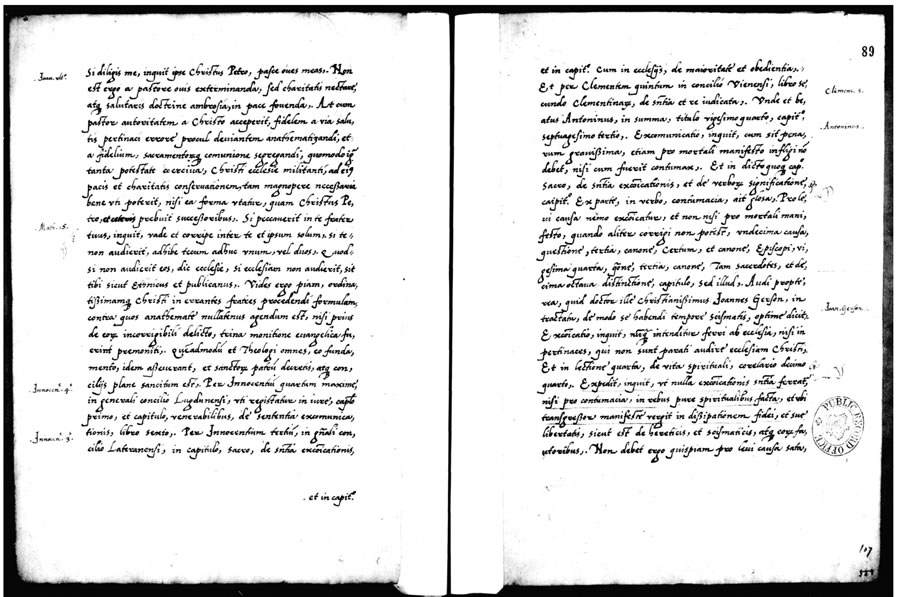 Joan. ulto.
Si diligis me, inquit ipse Christus Petro, pasce oues meas. Non
est ergo a pastore ouis exterminanda, sed charitatis nectare,
atq salutaris doctrine ambrosia, in pace fouenda. At cum
pastor autoritatem a Christo acceperit, fidelem a via salu,
tis pertinaci errore procul deviantem anathematizandi, et
a fidelium, sacramentorq comunione segregandi, quomodo
tanta potestate coerciua, Christi ecclesie militanti, ad
pacis et charitatis conseruationem, tam magnopere necessaria
bene vti poterit, nisi ea forma vtatur, quam Christus Pe,
tro, prebuit successoribus. Si peccauerit in te frater
Math. 18.
tuus, inquit, vade et corripe inter te et ipsum solum, si te
non audierit, adhibe tecum adhuc vnum, vel duos. Quod
si non audierit eos, dic ecclesie, si ecclesiam non audierit, sit
tibi sicut Etnicus et publicanus. Vides ergo piam, ordina,
tissimamq Christi in errantes fratres procedendi formulam,
contra quos anathemate nullatenus agendum est, nisi prius
de eorq incorrigibili delicto, trina monitione euangelica fu,
erint premoniti. Quēadmodū et Theologi omnes, eo funda,
mento, idem asseuerant, et sanctorq patrū decretis, atq con,
cilijs plane sancitum est. Per Innocentiū quartum maxime,
Innocen. 4.
in generali concilio Lugdunensi, vti registratur in iure, caplo
primo, et capitulo, venerabilibus, de sententia excomunica,
tionis, libro sexto. Per Innocentium tertiū, in gñali con,
Innocen. 3.
cilio Lateranensi, in capitulo, sacro, de sñtia excōicationis,
et in capit.
89
et in capit. Cum in ecclesijs, de maioritate et obedientia.
Et per Clementem quintum in concilio Vienensi, libro se,
Clemen. 5.
cundo Clementinarq, de sñtia et re iudicata. Vnde et be,
atus Antoninus, in summa, titulo vigesimo quarto, capit.
Antoninus.
septuagesimo tertio. Excomunicatio, inquit, cum sit pena,
rum gravissima, etiam pro mortali manifesto infligi nō
debet, nisi cum fuerit contumax. Et in dicto quoq cap.
sacro, de sñtia excōicationis, et de verborq significatione,
capit. Ex parte, in verbo, contumacia, ait glosa. Pro le,
ui causa nemo excōicatur, et non nisi pro mortali mani,
festo, quando aliter corrigi non potest, vndecima causa,
questione, tertia, canone, Certum, et canone, Episcopi, vi,
gesima quarta, qōne, tertia, canone, Tam sacerdotes, et de,
cima octaua distinctione, capitulo, sed illud. Audi propte,
rea, quid doctor ille Christianissimus Joannes Gerson, in
Joan. Gerson.
tractatu, de modo se habendi tempore scismatis, optime
Excōicatio, inquit, intenditur ferri ab ecclesia, nisi in
pertinaces, qui non sunt parati audire ecclesiam Christi.
Et in lectione quarta, de vita spirituali, corelario decimo
quarto. Expedit, inquit, vt nulla excōicationis sñtia ferrat,
nisi pro contumacia, in rebus pure spiritualibus facta, et vbi
transgressor manifeste vergit in dissipationem fidei, et sue
libertatis, sicut est de hereticis, et scismaticis, atq eorq fa,
utoribus. Non debet ergo quispiam pro leui causa sata,
PUBLIC RECORD OFFICE
107